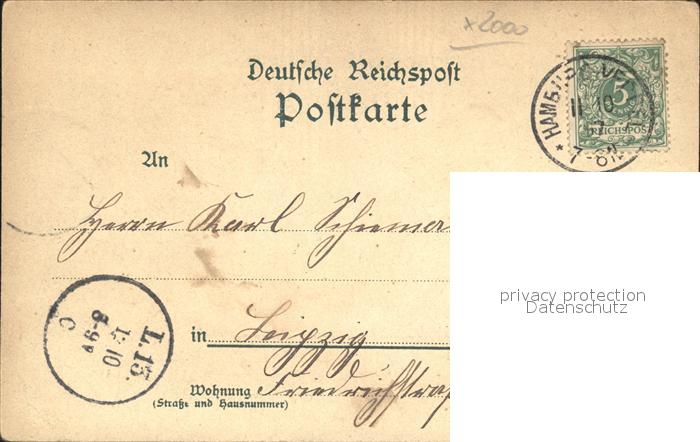 x2000
Deutsche Reichspost
Postkarte
5
REICHSPOST
HAMBURG
11 10
7-8N
An
Herrn Karl
in Leipzig
Wohnung
(Straße und Hausnummer)
L.13.
10
8-9V
C
privacy protection
Datenschutz